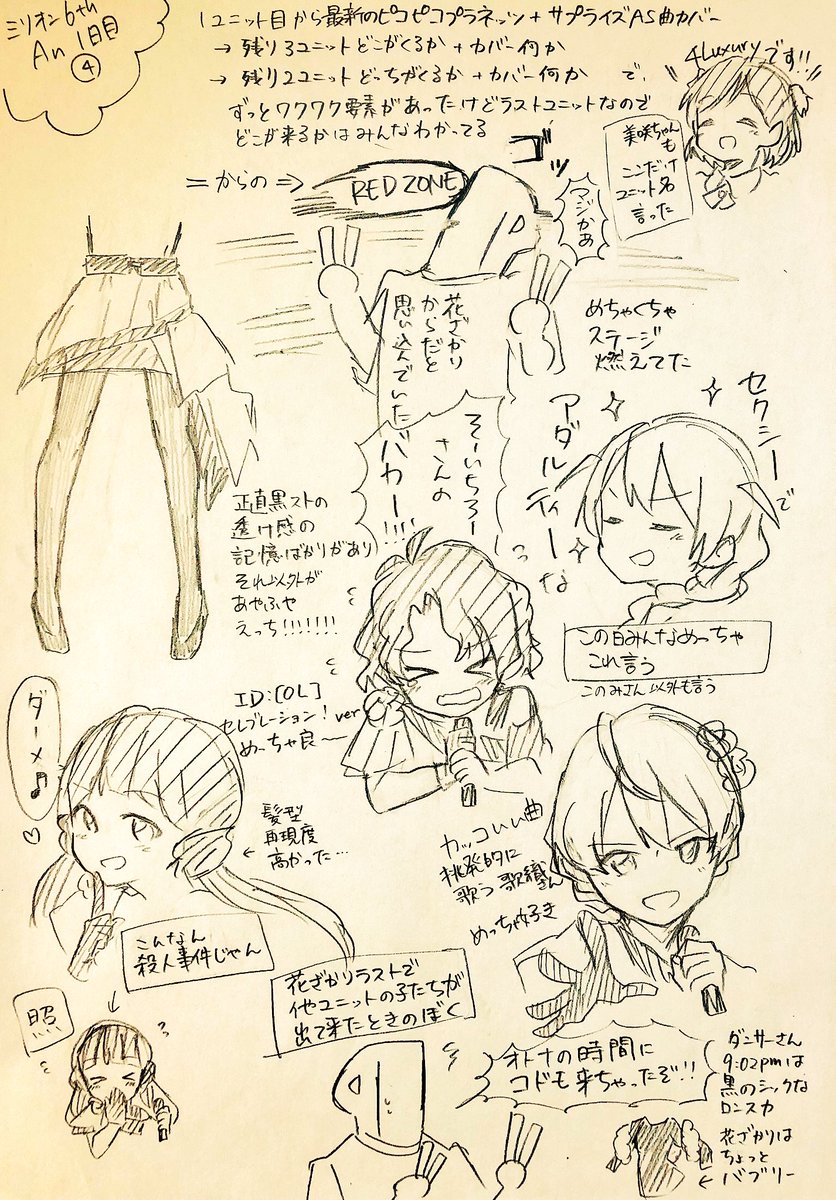 ミリオン6th
An 1日目
④
1ユニット目から最新のピコピコプラネッツ+サプライズAS曲カバー
→残り3ユニットどこがくるか+カバー何か
→残り2ユニットどっちがくるか+カバー何か で、
ずっとワクワク要素があったけどラストユニットなので
どこが来るかはみんなわかってる
4Luxuryです!!
美咲ちゃんも
ここだけ
ユニット名
言った
=からの⇒
RED ZONE
ゴッ
マジかぁ
花ざかり
からだと
思い込んでいた
めちゃくちゃ
ステージ
燃えてた
セクシーで
アダルティーな
そーいちろー
さんの
バカー!!!
っ
正直黒ストの
透け感の
記憶ばかりがあり
それ以外が
あやふや
えっち!!!!!!!
この日みんなめっちゃ
これ言う
このみさん以外も言う
ID:[OL]
セレブレーション!ver
めっちゃ良〜
ダーメ♪
髪型
再現度
高かった…
カッコいい曲
挑発的に
歌う歌織さん
めっちゃ好き
こんなん
殺人事件じゃん
照
花ざかりラストで
他ユニットの子たちが
出て来たときのぼく
オトナの時間に
コドモ来ちゃったぞ!!
ダンサーさん
9:02pmは
黒のシックな
ロンスカ
花ざかりは
ちょっと
バブリー